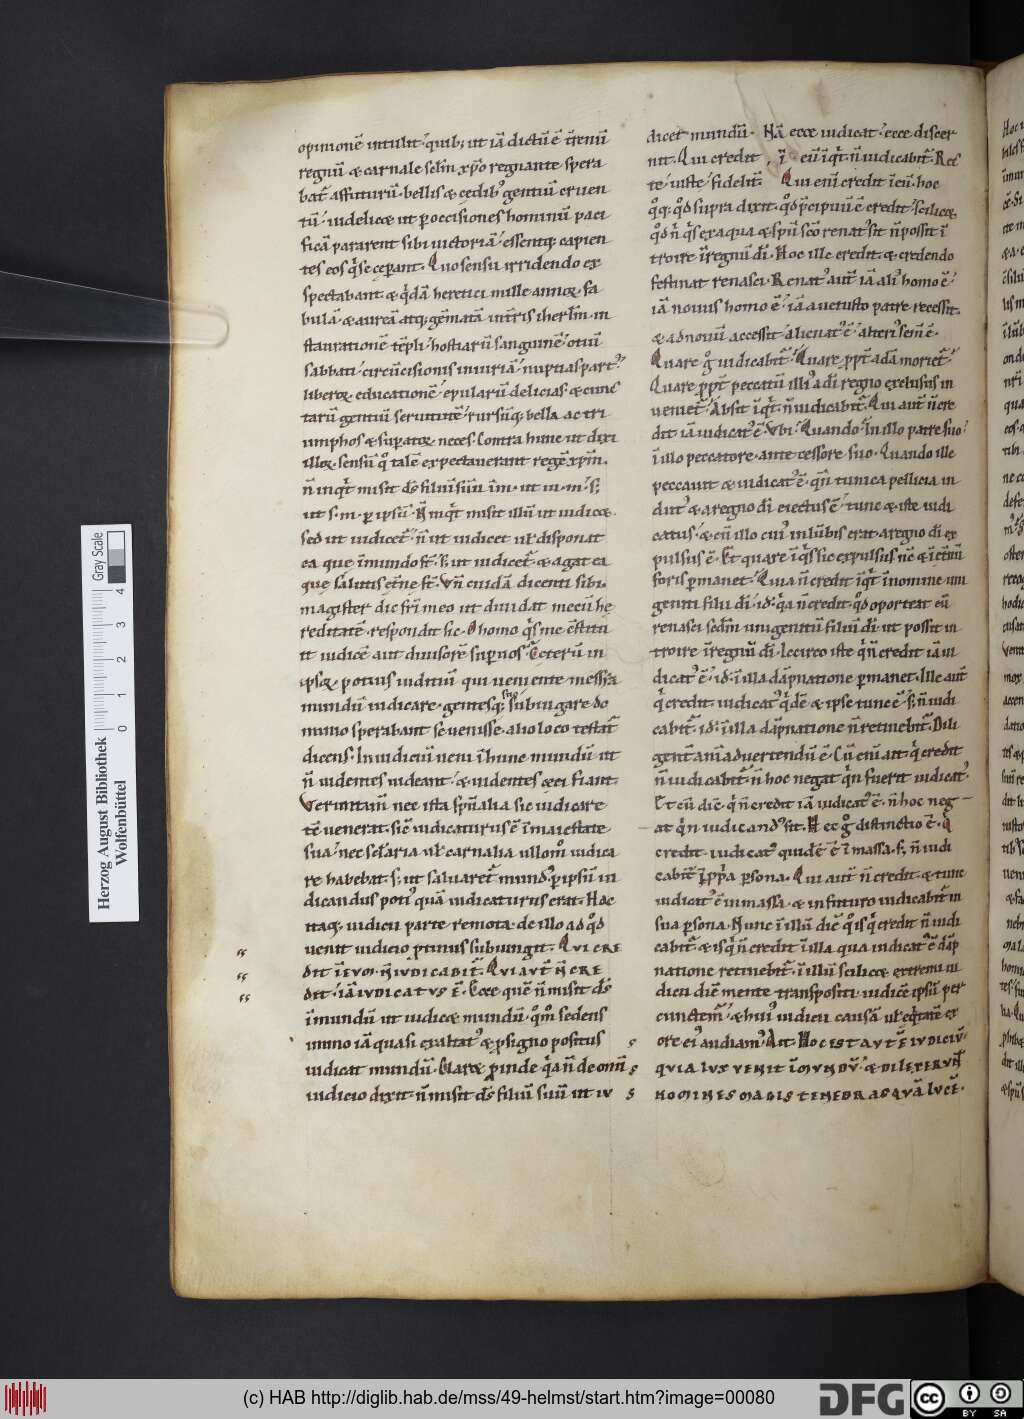 opinionē intulit. quib; ut iā dictū ē t̄renū
regnū & carnale sc̄lm xp̄o regnante spera
bat̄ affuturū. bellis & cedib' gentiū cruen
tū. uidelicæ ut p occisiones hominū paci
ficā pararent sibi uictoriā. essentq; capien
tes eos q̇ se ceperant. Quo sensu irridendo ex
spectabant & q̇dā heretici mille annoꝝ fa
bulā. & aureā atq; gēmatā int̄ris iherlm̄ in
staurationē tēpli. hostiarū sanguinē. otiū
sabbati. circūcisionis iniuriā. nuptias part'
liberoꝝ educationē. epularū delicias & cunc
tarū gentiū seruitutē. rursūq; bella ac tri
umphos & supatoꝝ neces. Contra hunc ut dixi
illoꝝ sensū q° talē expectauerant regē xp̄m.
n̄ inq̇t misit ds̄ filiū suū ī m. ut iu. m. s;
ut s. m. p ipsū. N̄ inq̇t misit illū ut iudicæ
sed ut iudicet̄. n̄ ut iudicet ut disponat
ea que ī mundo st̄. s; ut iudicet̄ & agat ea
que salutis et̄ne st̄. Vn̄ cuidā dicenti sibi.
magister dic fr̄i meo ut diuidat mecū he
reditatē. respondit sic. O homo q̇s me c̄stitu
it iudicē aut diuisorē sup nos. Ceterū in
ipsoꝝ potius iuditiū qui ueniente messia
mundū iudicare. gentesq; suo subiugare do
mino sperabant se uenisse. alio loco testat̄
dicens. In iudiciū ueni ī hunc mundū ut
n̄ uidentes uideant. & uidentes ceci fiant.
Verumtam̄ nec ista spūalia sic iudicare
tē uenerat. sic̄ iudicaturus ē ī maiestate
sua. nec sc̄laria ut carnalia ullom° iudica
re habebat. s; ut saluaret̄ mund' p ipsū iu
dicandus poti' quā iudicaturus erat. Hoc
itaq; iudicii parte remota. de illo ad q°d
uenit iudicio ptinus subiungit. QVI CRE
DIT ĪEVM. N̄ IVDICABIT̄. QVI AVT̄ N̄ CRE
DIT. IĀ IVDICATVS Ē. Ecce quē n̄ misit ds̄
ī mundū ut iudicæ mundū. q°m° sedens
immo iā quasi exaltat' & p signo positus
iudicat mundū. Clare pinde q̇a n̄ de omī
iudicio dixit. n̄ misit ds̄ filiū suū ut iu
dicet mundū. Nā ecce iudicat. ecce discer
nit. Qui credit ī eū iq̇t n̄ iudicabit̄. Rec
te. iuste. fidelit̄. Qui enī credit ī eū. hoc
q°q; q°d supra dixit. q°d p̄cipuū ē credit. scilicæ
q°d n̄ q̇s ex aqua & spū sc̄o renat' sit n̄ possit ī
troire ī regnū dī. Hoc ille credit. & credendo
festinat renasci. Renat' aut̄ iā ali' homo ē.
iā nouus homo ē. iā a uetusto patre recessit.
& ad nouū accessit. alienat' ē. alteri' sem̄ ē.
Quare g° iudicabit̄. Quare ppt̄ adā moriet̄.
Quare ppt̄ peccatū illi' a dī regno exclusus in
ueniet̄. Absit iq̇t. n̄ iudicabit̄. Qui aut̄ n̄ cre
dit iā iudicat' ē. Vbi. Quando. In illo patre suo.
ī illo peccatore. antecessore suo. Quando ille
peccauit & iudicat' ē. q̄n tunica pellicia in
dut' & a regno dī eiectus ē. tunc & iste iudi
catus. & cū illo cui' in lūbis erat a regno dī ex
pulsus ē. Et quare ī q̇t sic expulsus nc̄ & ī et̄nū
foris pmanet. Quia n̄ credit iq̇t ī nomine uni
geniti filii dī. id. q̇a n̄ credit. q°d oporteat eū
renasci sedm̄ unigenitū filiū dī. ut possit in
troire ī regnū dī. Iccirco iste q̇ n̄ credit iā iu
dicat' ē. id. ī illa dāpnatione pmanet. Ille aut̄
q̇ credit. iudicat' q̇dē & ipse tunc ē. s; n̄ iudi
cabit̄. id. ī illa dāpnatione n̄ retinebit̄. Dili
gent̄ animaduertendū ē. Cū enī ait. q̇ credit
n̄ iudicabit̄. n̄ hoc negat q̇n fuerit iudicat'.
Et cū dic̄. q̇ n̄ credit iā iudicat' ē. n̄ hoc neg
at q̇n iudicand' sit. Hec g° distinctio ē. Q̇
credit. iudicat' quidē ē ī massa. s; n̄ iudi
cabit̄ ī ppa psona. Qui aut̄ n̄ credit & tunc
iudicat' ē in massa. & in futuro iudicabit̄ in
sua psona. Nunc ī illū diē q°isq̇ credit n̄ iudi
cabit̄. & isq̇ n̄ credit ī illa qua iudicat' ē dāp
natione retinebit̄. ī illū scilicæ extremi iu
dicii diē mente transpositi. iudicē ipsū per
cunctem̄. & hui' iudicii causā ut eq̇tatē ex
ore ei' audiam'. Ait. HOC EST AVTĒ IVDICIV̄.
QVIA LVX VENIT ĪMVNDV̄. & DILEXERVN̄
HOMINES MAGIS TENEBRAS QVĀ LVCĒ.
Herzog August Bibliothek
Wolfenbüttel
Gray Scale
0 1 2 3 4
(c) HAB http://diglib.hab.de/mss/49-helmst/start.htm?image=00080
DFG
cc BY SA